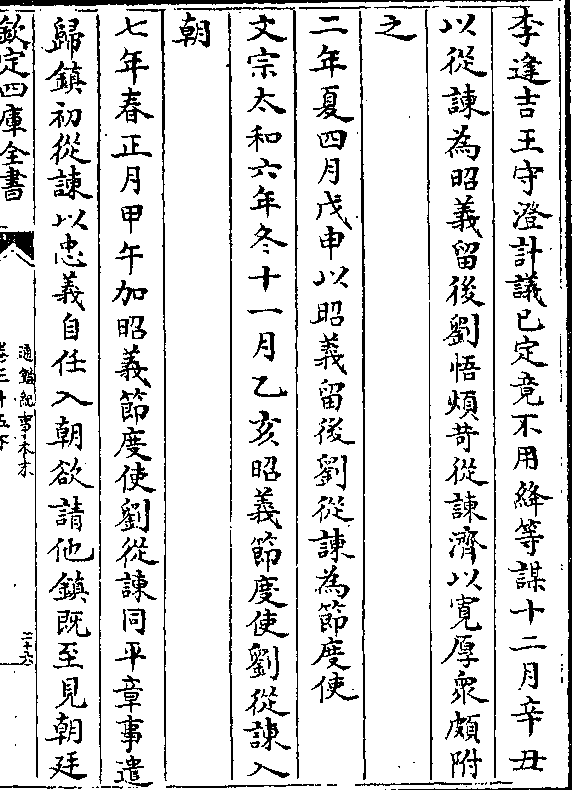 李逢吉王守澄計議已定竟不用絳等謀十二月辛丑
以從諫為昭義留後劉悟煩苛從諫濟以寛厚衆頗附
之
二年夏四月戊申以昭義留後劉從諫為節度使
文宗太和六年冬十一月乙亥昭義節度使劉從諫入
朝
七年春正月甲午加昭義節度使劉從諫同平章事遣
歸鎮初從諫以忠義自任入朝欲請他鎮既至見朝廷
欽定四庫全書
通鑑紀事本末
卷三十五下
三十六